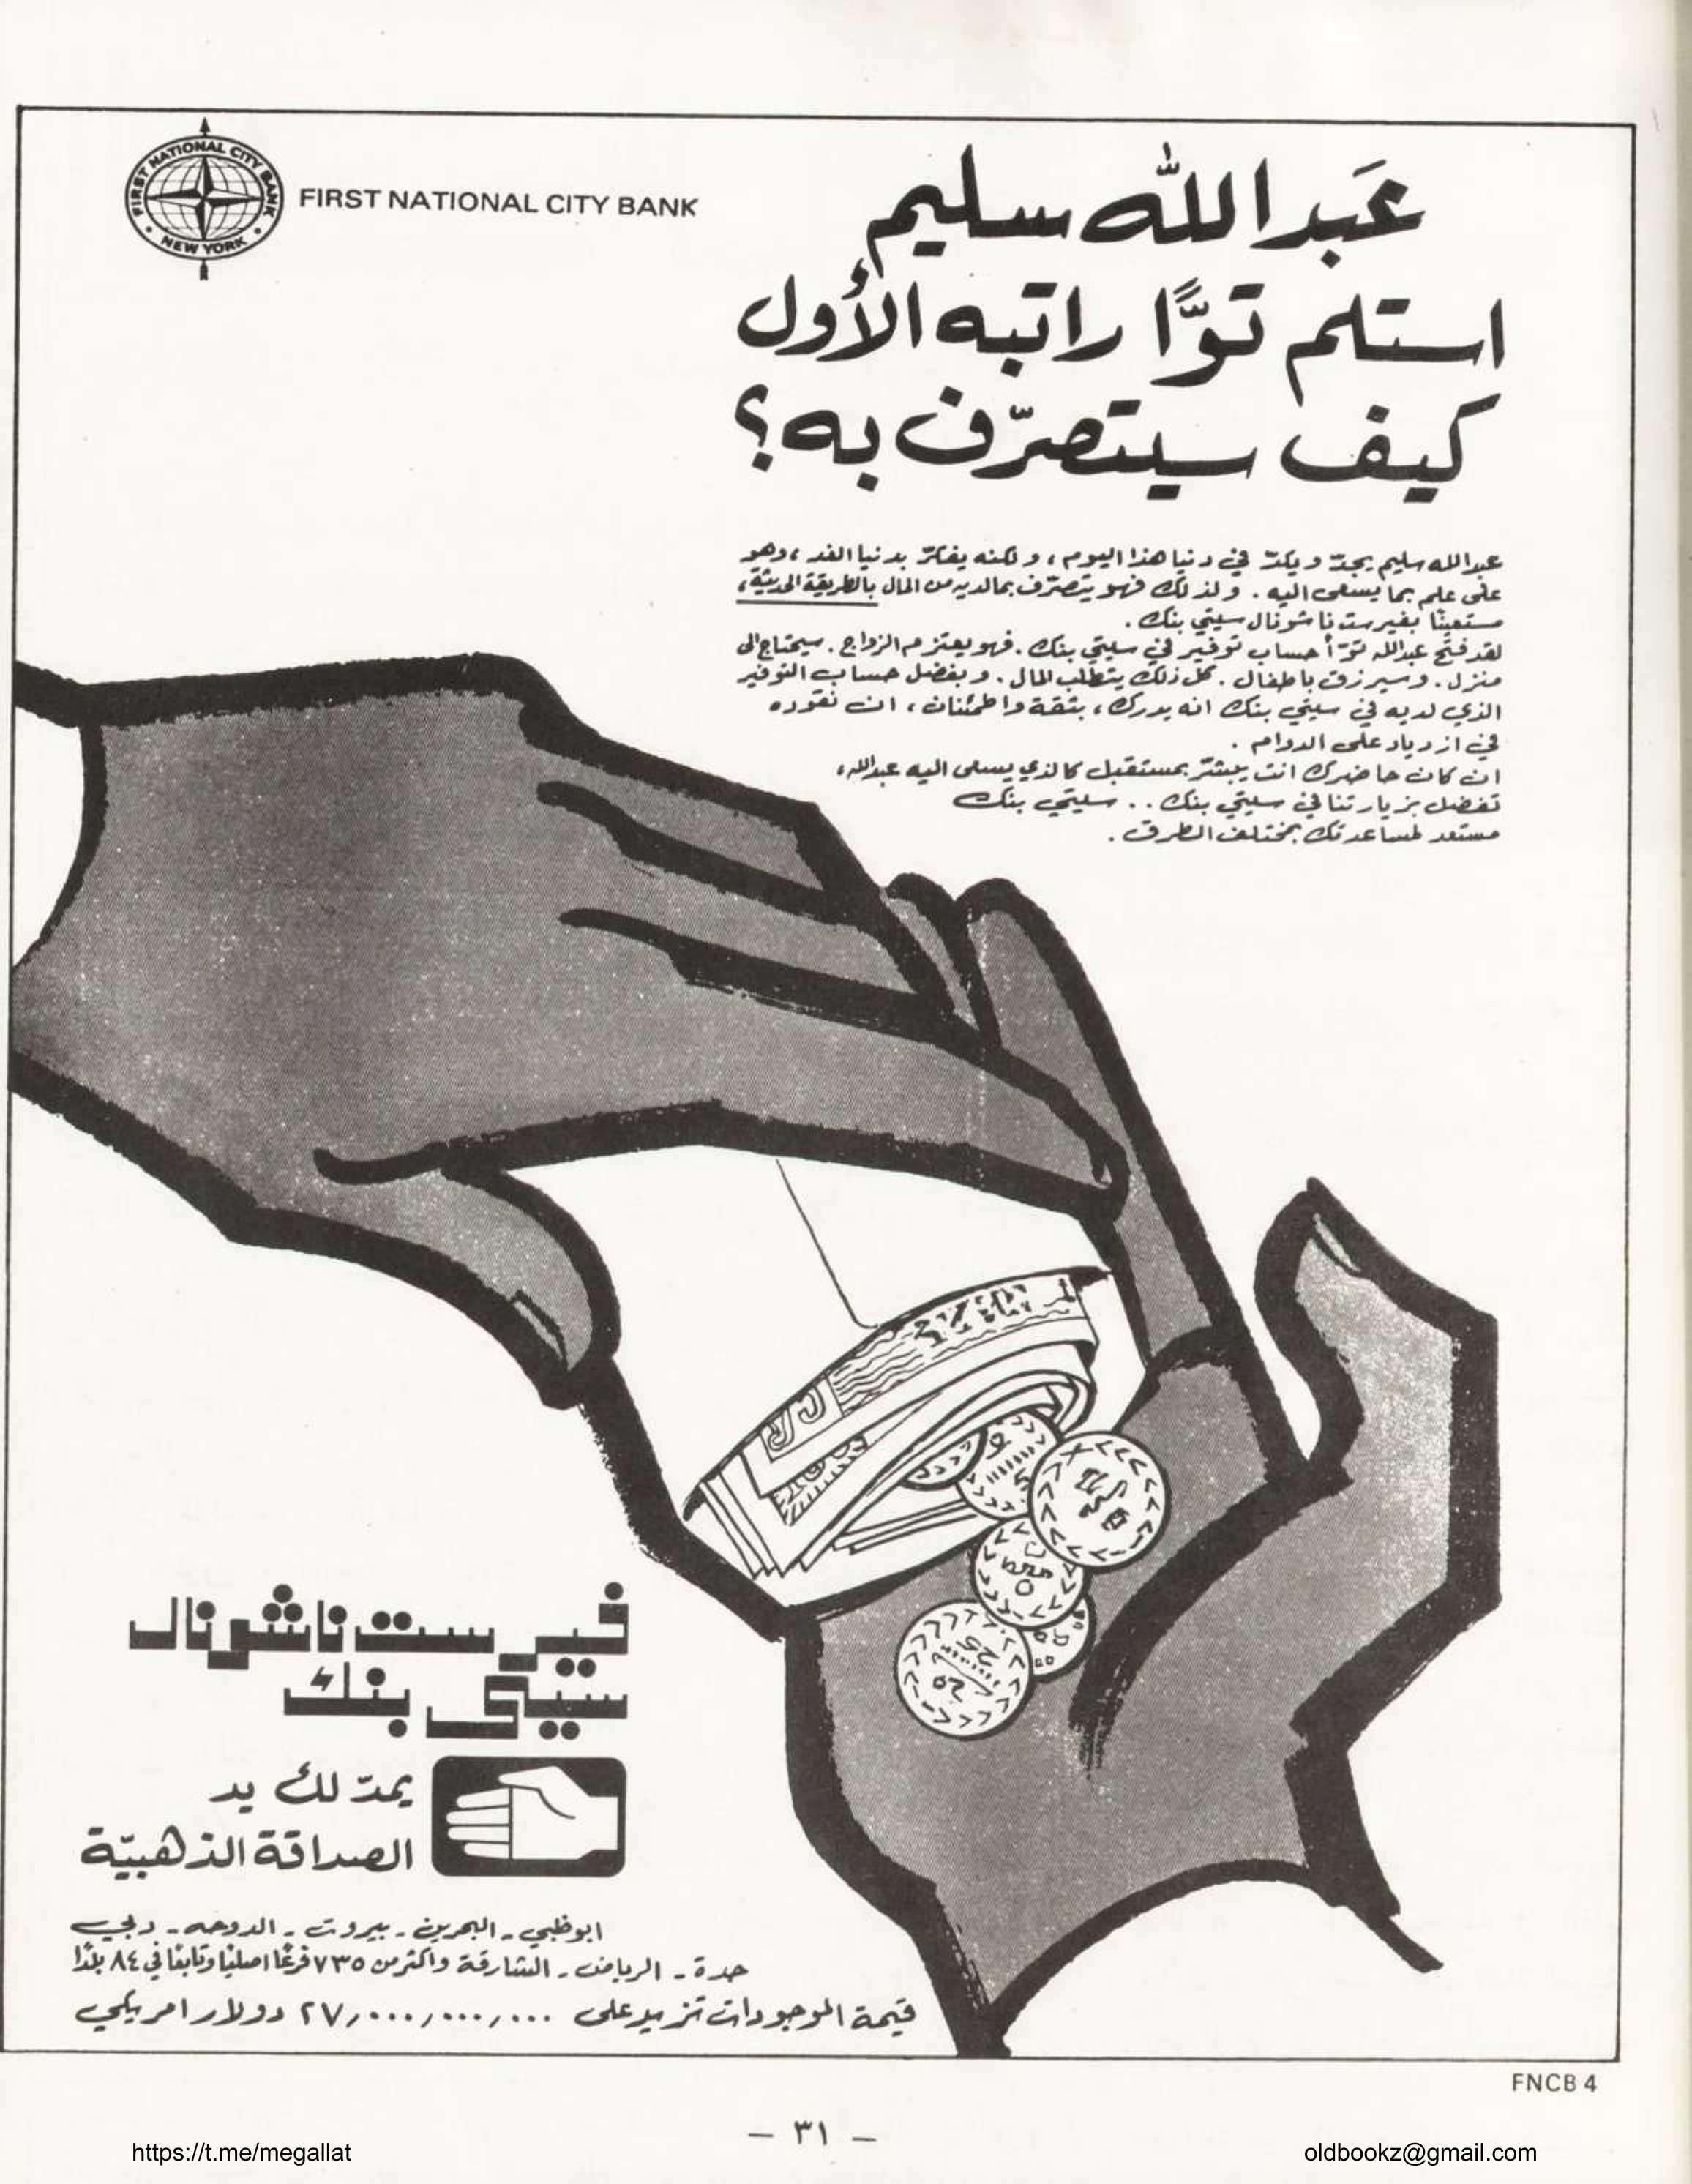 FIRST NATIONAL CITY BANK
NEW YORK
FIRST NATIONAL CITY BANK
عَبدالله سليم
استلم توًّا راتبه الأول
كيف سيتصرّف به؟
عبدالله سليم يجدّ ويكدّ في دنيا هذا اليوم، ولكنه يفكّر بدنيا الغد، وهو
على علم بما يسعى اليه. ولذلك فهو يتصرّف بمالديه من المال بالطريقة الحديثة،
مستعينًا بفيرست ناشونال سيتي بنك.
لقد فتح عبدالله توّاً حساب توفير في سيتي بنك. فهو يعتزم الزواج. سيحتاج الى
منزل. وسيرزق باطفال. كل ذلك يتطلب المال. وبفضل حساب التوفير
الذي لديه في سيتي بنك انه يدرك، بثقة واطمئنان، ان نقوده
في ازدياد على الدوام.
ان كان حاضرك انت يبشّر بمستقبل كالذي يسعى اليه عبدالله،
تفضل بزيارتنا في سيتي بنك.. سيتي بنك
مستعد لمساعدتك بمختلف الطرق.
فيرست ناشونال
سيتي بنك
يمدّ لك يد
الصداقة الذهبيّة
ابوظبي - البحرين - بيروت - الدوحه - دبي
جدة - الرياض - الشارقة واكثر من ٧٣٥ فرعًا اصليًا وتابعًا في ٨٤ بلدًا
قيمة الموجودات تزيد على ٢٧,٠٠٠,٠٠٠,٠٠٠ دولار امريكي
FNCB 4
— ٣١ —
https://t.me/megallat
oldbookz@gmail.com